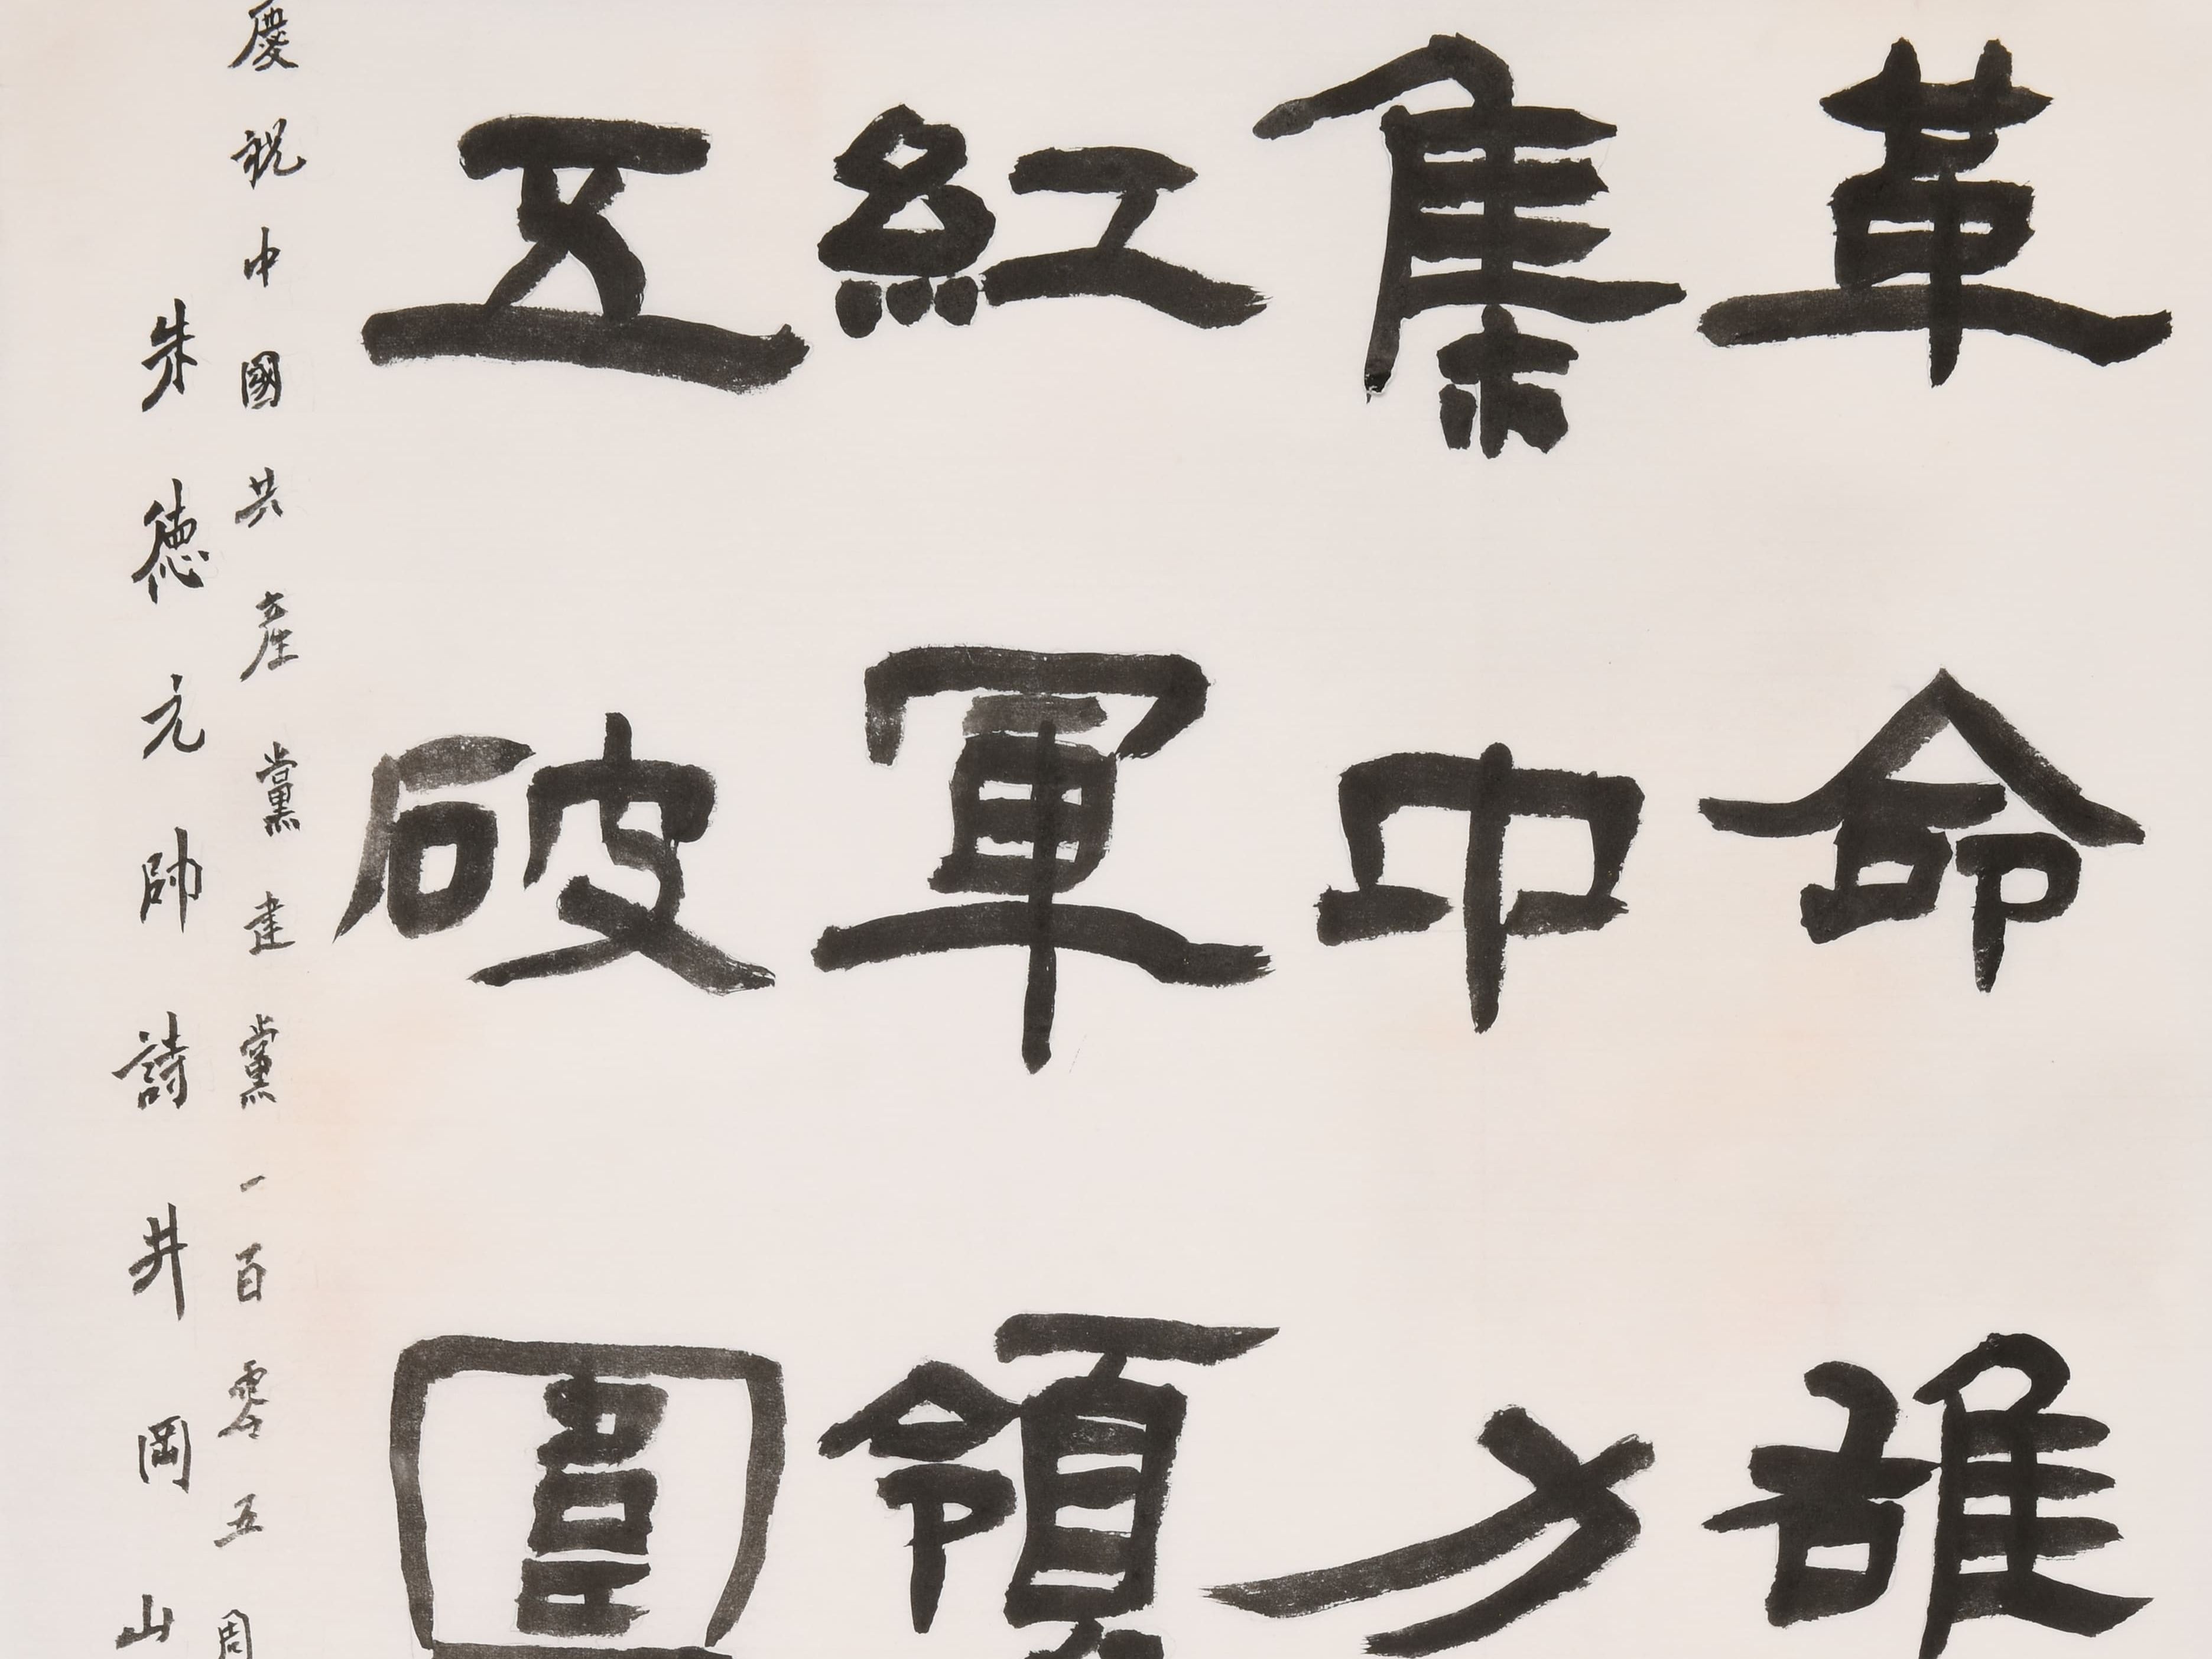 革命雄
集中力
紅軍領
五破圍
慶祝中國共產黨建黨一百零五周
朱德元帥詩井岡山